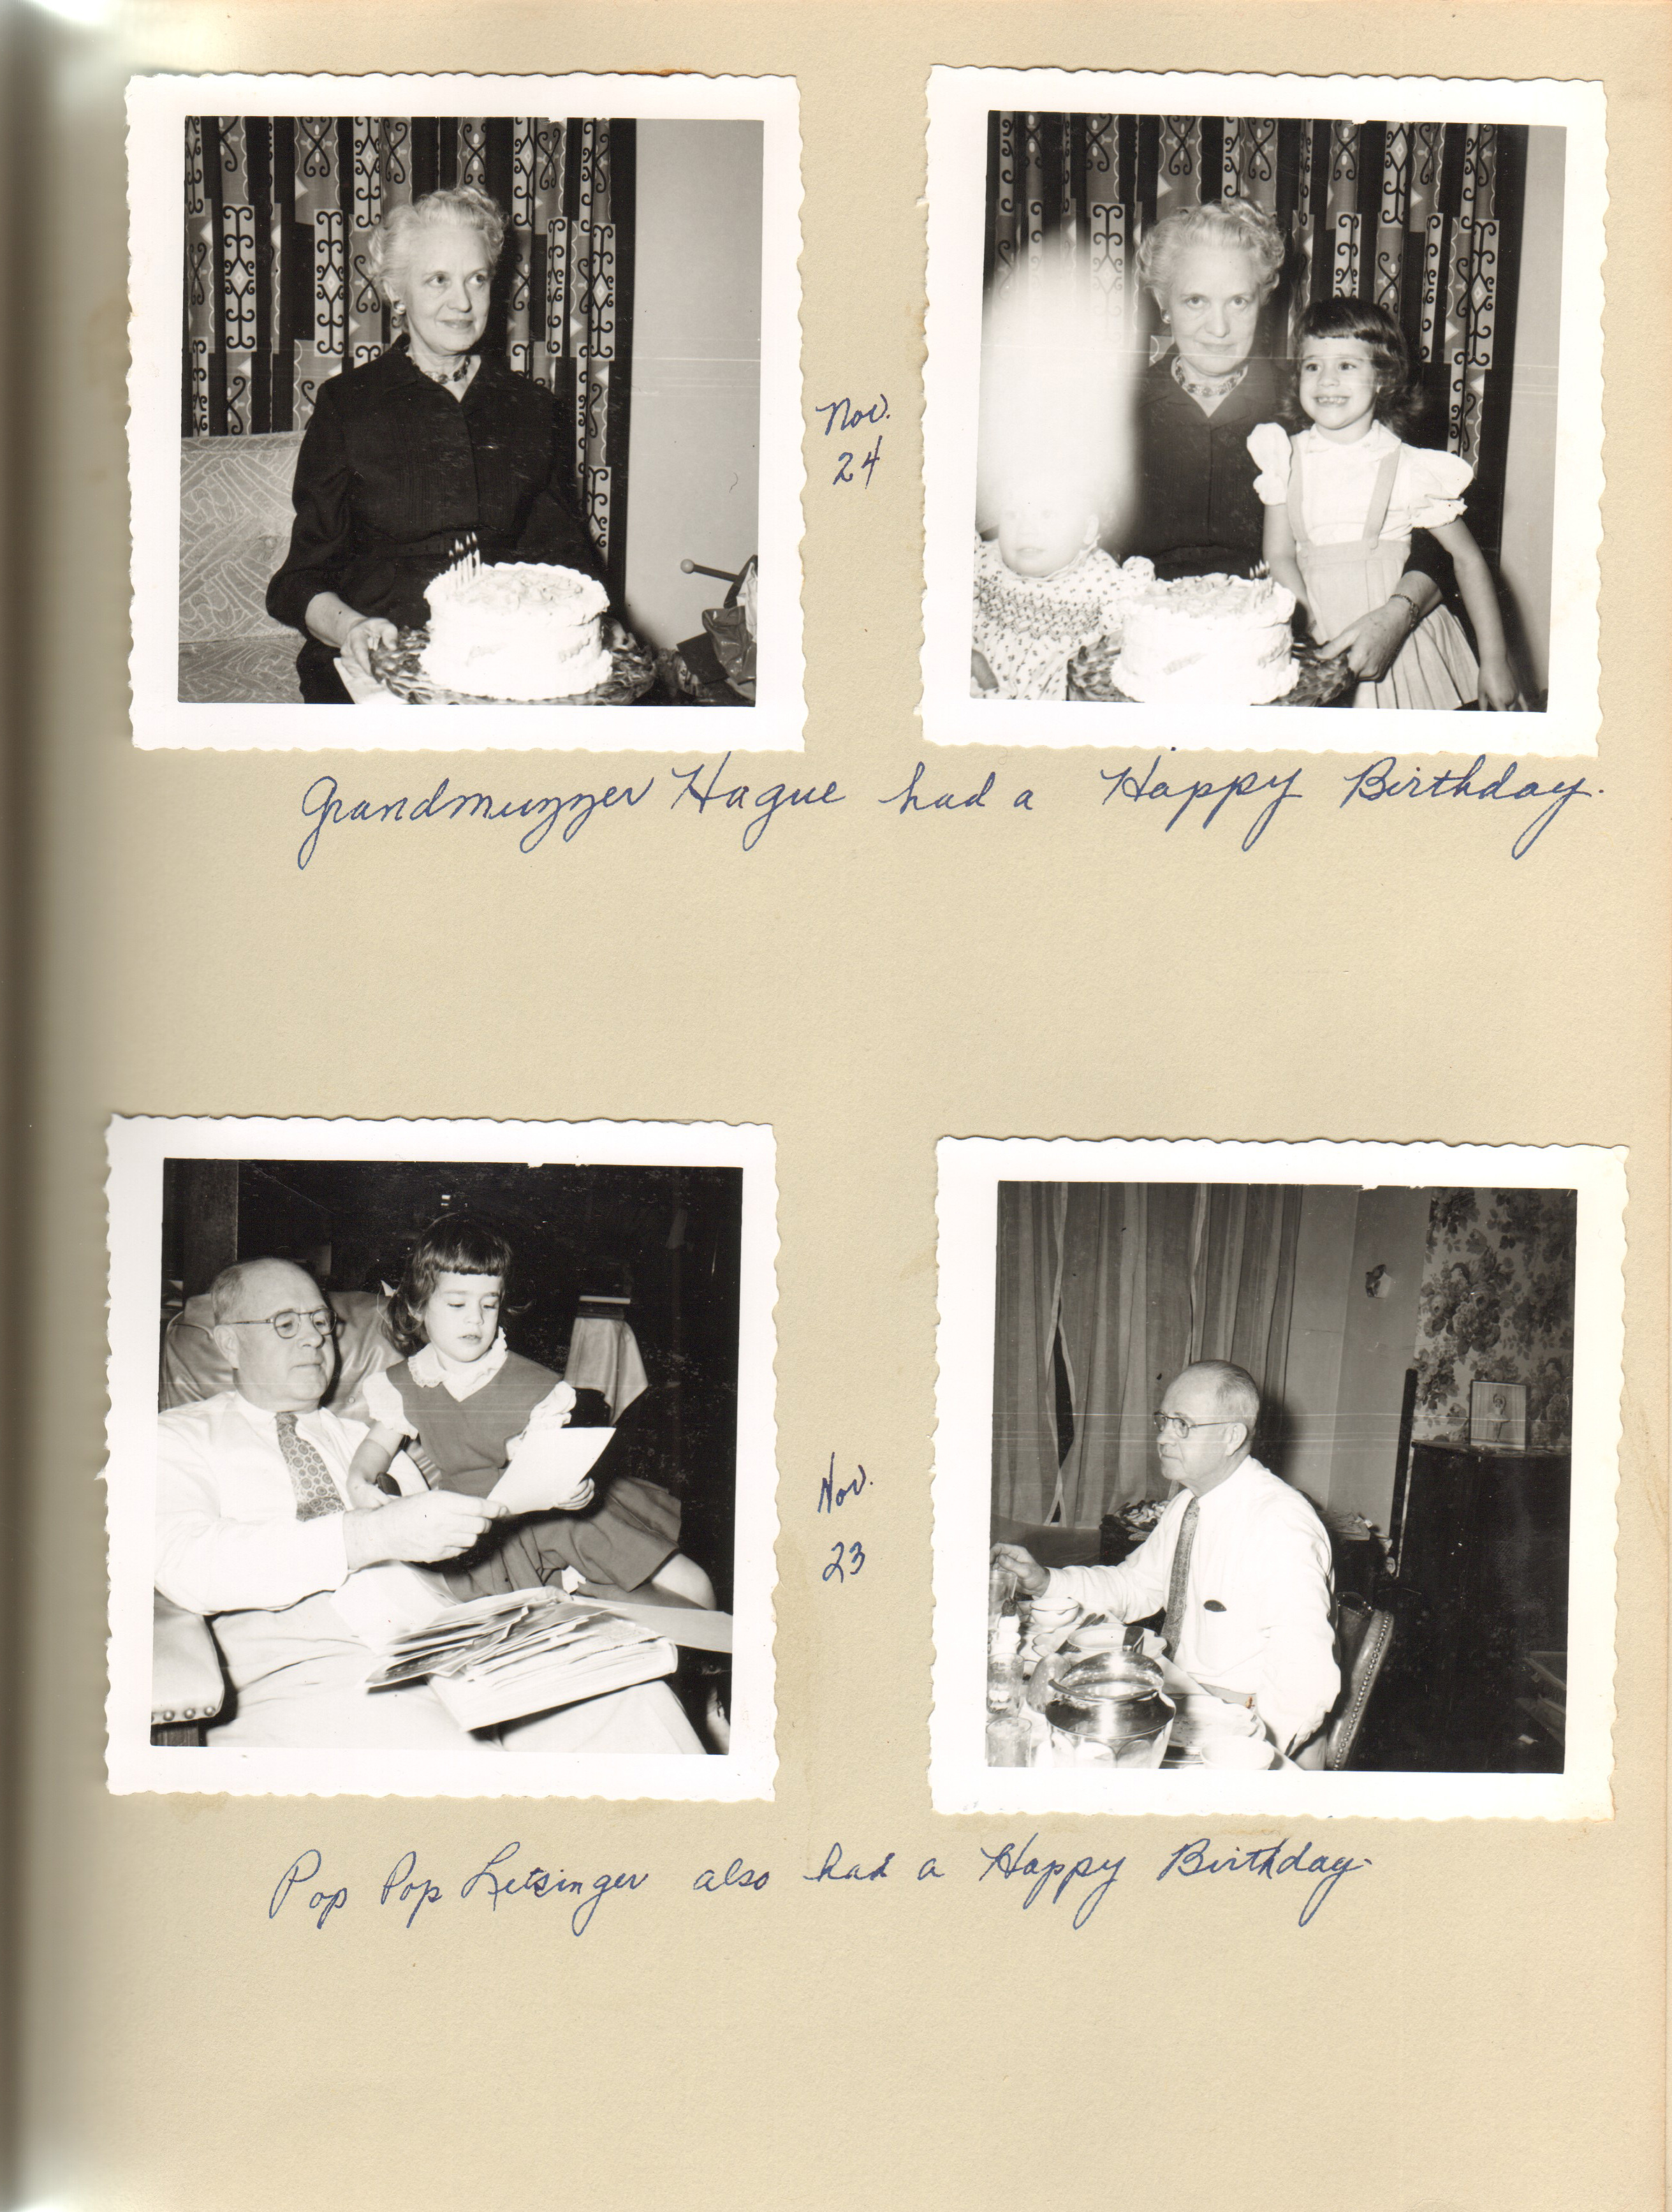 Nov.
24
Grandmuzzer Hague had a Happy Birthday.
Nov.
23
Pop Pop Letsinger also had a Happy Birthday.